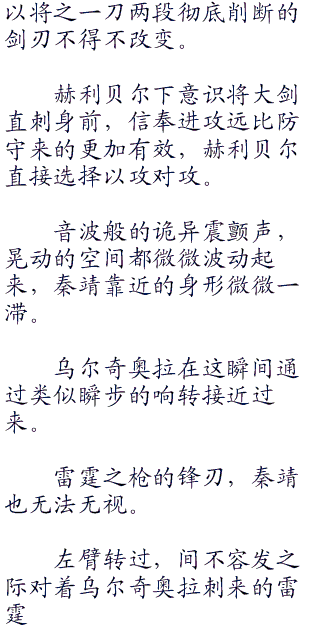 以将之一刀两段彻底削断的
剑刃不得不改变。
赫利贝尔下意识将大剑
直刺身前，信奉进攻远比防
守来的更加有效，赫利贝尔
直接选择以攻对攻。
音波般的诡异震颤声，
晃动的空间都微微波动起
来，秦靖靠近的身形微微一
滞。
乌尔奇奥拉在这瞬间通
过类似瞬步的响转接近过
来。
雷霆之枪的锋刃，秦靖
也无法无视。
左臂转过，间不容发之
际对着乌尔奇奥拉刺来的雷
霆